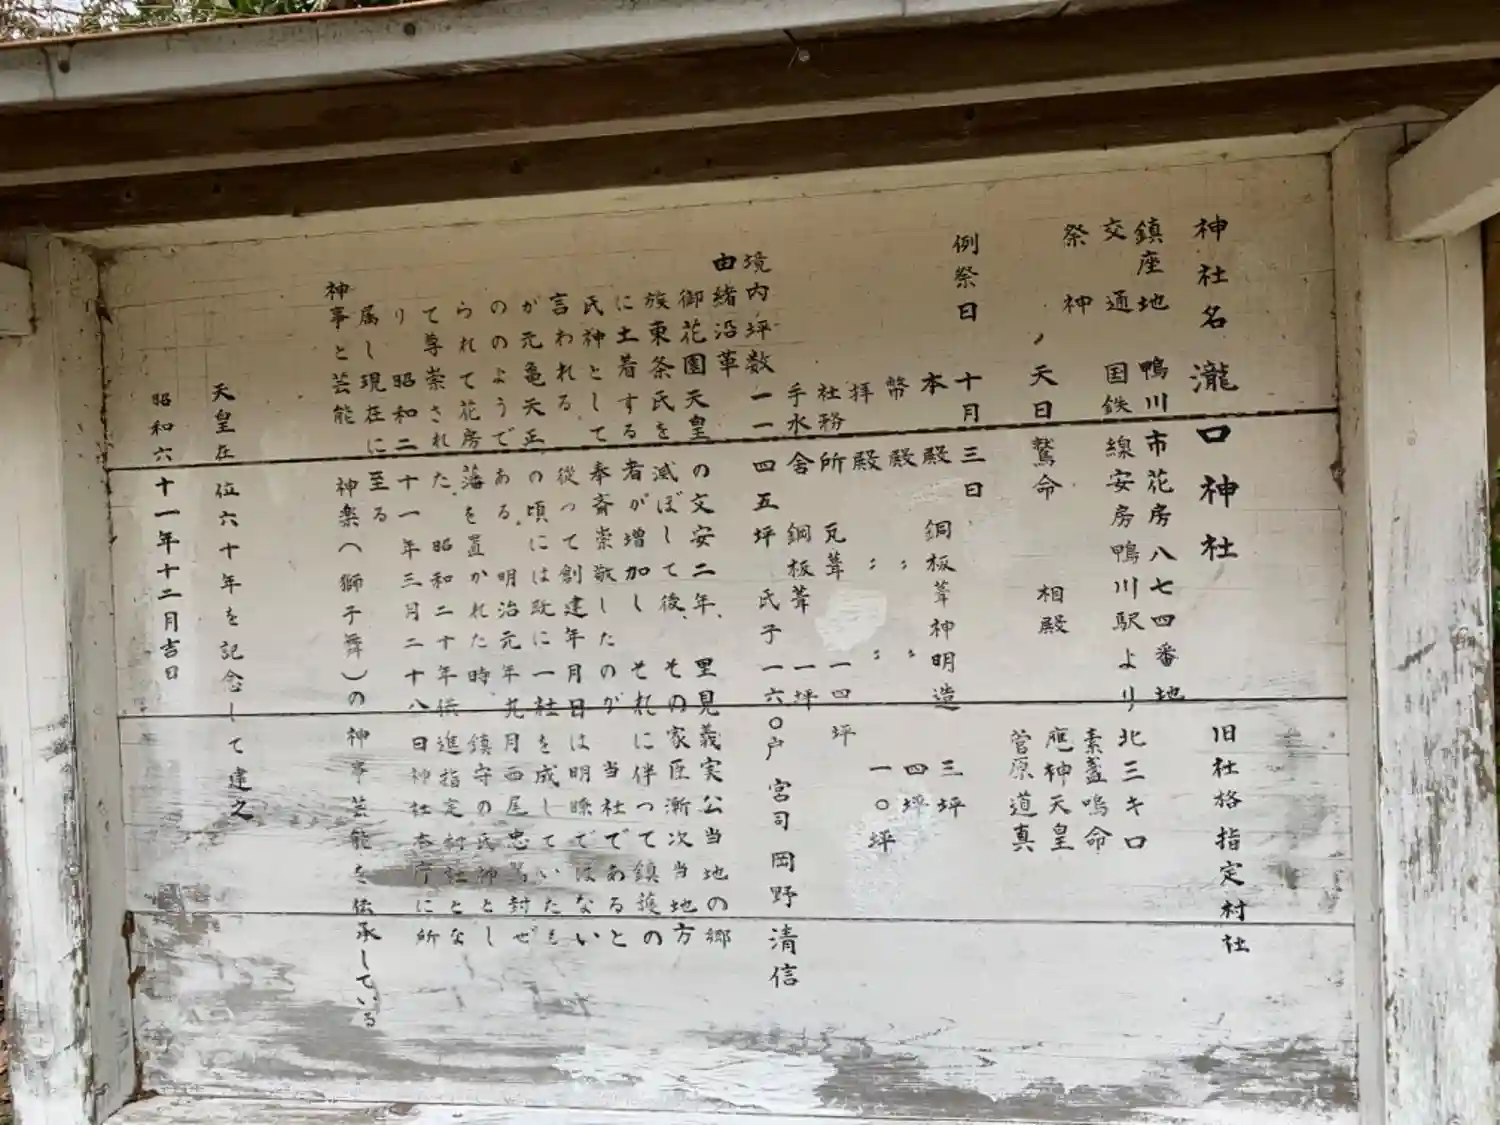 神社名 瀧口神社 旧社格指定村社
鎮座地 鴨川市花房八七四番地
交通 国鉄線安房鴨川駅より北三キロ
祭神 天日鷲命 相殿 素盞嗚命
應神天皇
菅原道真
例祭日 十月三日
本殿 銅板葺神明造 三坪
幣殿 〃 〃 四坪
拝殿 〃 〃 一〇坪
社務所 瓦葺 一四坪
手水舎 銅板葺 一坪
境内坪数 一一四五坪 氏子一六〇戸 宮司 岡野清信
由緒沿革
御花園天皇の文安二年、里見義実公当地の郷
族東条氏を滅ぼして後、その家臣漸次当地方
に土着する者が増加し それに伴って鎮護の
氏神として奉斉崇敬したのが 当社であると
言われる 従って創建年月日は明瞭ではない
が元亀天正の頃には既に一社を成していたも
ののようである。明治元年九月西尾忠篤封ぜ
られて花房藩を置かれた時 鎮守の氏神とし
て尊崇された。昭和二十年供進指定村社とな
り 昭和二十一年三月二十八日神社本庁に所
属し現在に至る
神事と芸能 神楽(獅子舞)の神事芸能を伝承している
天皇在位六十年を記念して建之
昭和六十一年十二月吉日